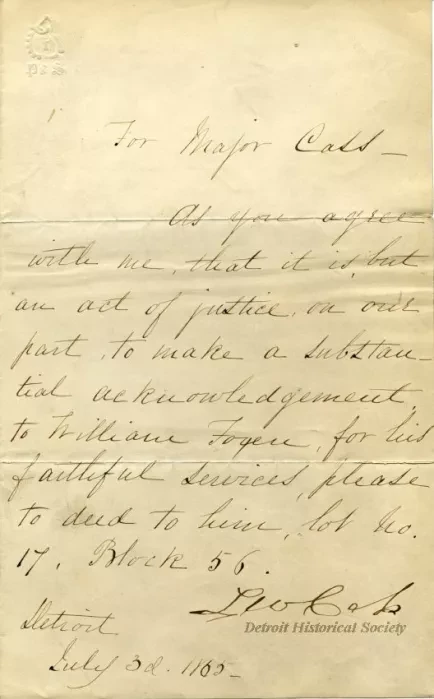 For Major Cass—
As you agree
with me, that it is but
an act of justice, on our
part, to make a substan-
tial acknowledgement
to William Foyen, for his
faithful services, please
to deed to him, lot No.
17, Block 56.
Lew Cass
Detroit Historical Society
Detroit
July 3d. 1865—